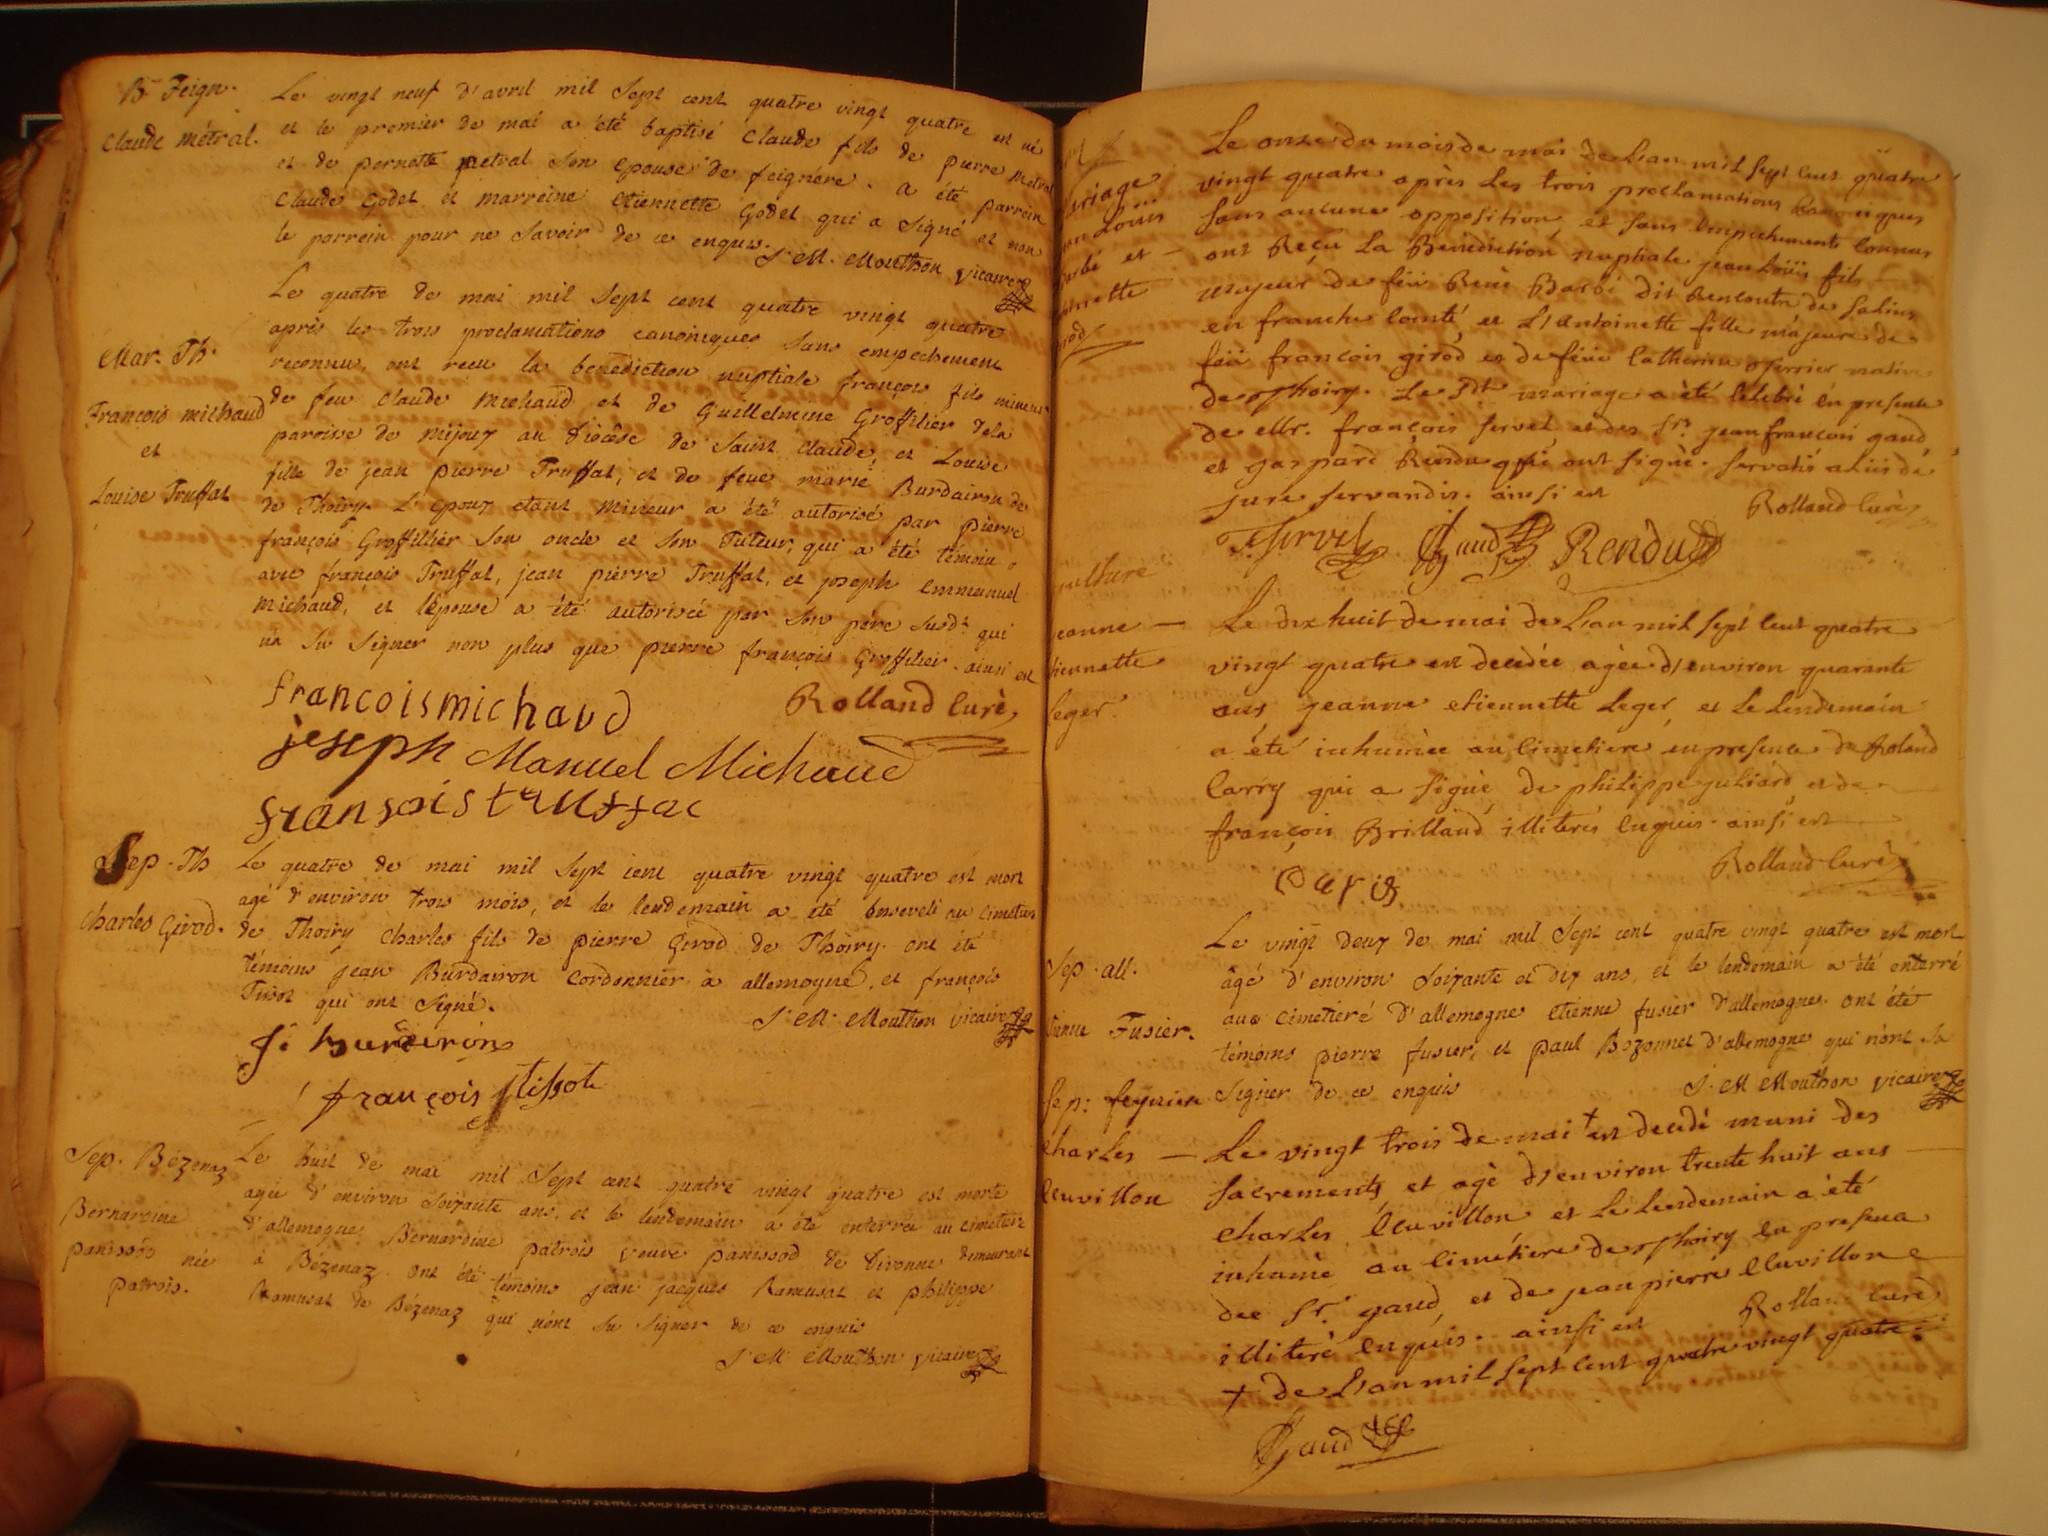 B. Feign.
Claude Métral.
Le vingt neuf d'avril mil sept cent quatre vingt quatre est né
et le premier de mai a été baptisé Claude fils de pierre Métral
et de pernette petral son epouse de feignére. a été parrein
Claude Godet et marreine Etiennette Godet qui a signé et non
le parrein pour ne savoir de ce enquis.
J. M. Mouthon vicaire
Mar. Th.
François michaud
et
Louise Truffat
Le quatre de mai mil sept cent quatre vingt quatre
aprés les trois proclamations canoniques sans empechement
reconnu, ont recu la benediction nuptiale françois fils mineur
de feu Claude Michaud et de Guillelmine Groffilier de la
paroisse de Mijoux au Diocése de Saint Claude, et Louise
fille de jean pierre Truffat, et de feue marie Burdairon de
de Thoiry. L'epoux etant Mineur a été autorisé par pierre
françois Groffillier son oncle et son Tuteur, qui a été témoin
avec francois Truffat, jean pierre Truffat, et joseph emmanuel
Michaud, et l'épouse a été autorisée par son père susdt. qui
na su signer non plus que pierre françois Groffilier. ainsi est
francoismichaud
Rolland Curé
joseph Manuel Michaud
fransois truffac
Sep. Th
Charles Girod.
Le quatre de mai mil sept cent quatre vingt quatre est mort
agé d'environ trois mois, et le lendemain a été enseveli au cimetiere
de Thoiry Charles fils de pierre Girod de Thoiry. ont été
témoins jean Burdairon cordonnier à allemogne, et françois
Tissot qui ont signé.
J. M. Mouthon vicaire
J. burdairon
françois tissot
Sep. Bézenaz
Bernardine
panissod née
patrois.
Le huit de mai mil sept cent quatre vingt quatre est morte
agée d'environ soixante ans, et le lendemain a été enterrée au cimetiere
d'allemogne Bernardine patrois veuve panissod de Divonne demeurant
à Bézenaz. ont été témoins jean jacques Ramusat et philippe
Ramusat de Bézenaz qui nónt su signer de ce enquis
J. M. Mouthon vicaire
ariage
an Loüis
arbé et
oinette
irod
Le onze du mois de mai de L'an mil sept cent quatre
vingt quatre après Les trois proclamations Canoniques
sans aucune opposition, et sans empechements connus
ont Reçu La Bénédiction nuptiale jean Loüis fils
majeur de feü René Barbé dit Rencontre de salins
en franche comté, et L'Antoinette fille majeure de
feü françois girod et de feüe Catherine perrier native
de Thoiry. Le sdt mariage a été célebré en presence
de Mr. françois servet et des srs. jean françois gaud
et gaspard Rendu qui ont signé. servatis aliis de
jure servandis. ainsi est
Rolland Curé
F. Servet Gaud Rendu
pulture
jeanne
tiennette
Leger.
Le dix huit de mai de L'an mil sept cent quatre
vingt quatre est decédée agée d'environ quarante
ans jeanne etiennette Leger, et Le Lendemain
a été inhumée au cimetiere en presence de Roland
Carry qui a signé, de philippe juliard et de
françois Brilland illiterés enquis. ainsi est
Rolland Curé
Carÿ
Sep. all.
tienne Fusier.
Le vingt deux de mai mil sept cent quatre vingt quatre est mort
âgé d'environ soixante et dix ans, et le lendemain a été enterré
au cimetiéré d'allemogne etiénne fusier d'allemogne. ont été
témoins pierre fusier, et paul Bozonnet d'allemogne qui nónt su
signer de ce enquis
J. M Mouthon vicaire
Sep:
Charles
Cuvillon
Le vingt trois de mai + est decedé muni des
sacrements, et agé d'environ trente huit ans
Charles Cuvillon et Le Lendemain a été
inhumé au cimétiere de Thoiry en presence
du sr. gaud, et de jean pierre Cuvillon
illiteré enquis. ainsi est
Rolland Curé
+ de L'an mil sept cent quatre vingt quatre.
Gaud